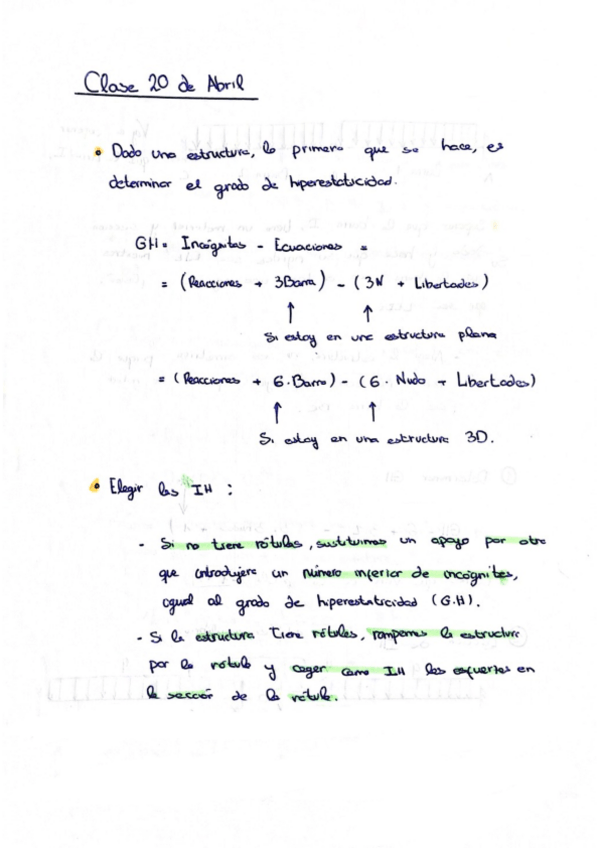 Clase 20 de Abril
• Dado una estructura, lo primero que se hace, es
determinar el grado de hiperestaticidad.
GH = Incógnitas - Ecuaciones =
= (Reacciones + 3Barra) - (3N + Libertades)
↑ ↑
Si estoy en una estructura plana
= (Reacciones + 6·Barra) - (6·Nudo + Libertades)
↑ ↑
Si estoy en una estructura 3D.
• Elegir las IH :
- Si no tiene rótulas, sustituimos un apoyo por otro
que introdujera un número inferior de incógnitas,
igual al grado de hiperestaticidad (G.H).
- Si la estructura tiene rótulas, rompemos la estructura
por la rótula y coger como IH los esfuerzos en
la sección de la rótula.